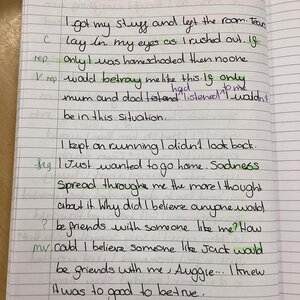 I got my stuff and left the room. Tears
C lay in my eyes as I rushed out. If
rep only I was homeschooled then no one
V rep would betray me like this. If only
had to me
mum and dad listened I wouldn't
be in this situation.
I kept on running I didn't look back.
I just wanted to go home. Sadness
spread through me the more I thought
about it. Why did I believe anyone would
? be friends with someone like me? How
could I believe someone like Jack would
be friends with me, Auggie... I knew
it was to good to be true.